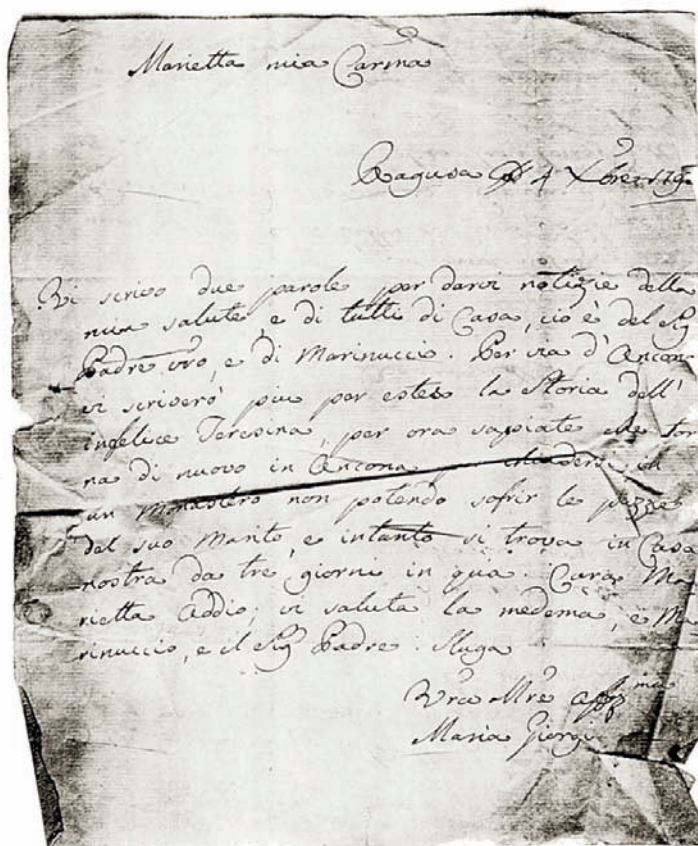 Marietta mia Carma
Ragusa 4 Xbre 179
Vi scrivo due parole per darvi notizie della
mia salute, e di tutti di Casa, cio è del Sig
Padre vro, e di Marinuccio. Per via d'Ancona
vi scriverò piu per esteso la Storia dell'
infelice Teresina, per ora sapiate che tor
na di nuovo in Ancona chiudersi in
un Monastero non potendo sofrir le
del suo Marito, e intanto si trova in Casa
nostra da tre giorni in qua. Cara Ma
rietta Addio; vi saluta la medema, e Ma
rinuccio, e il Sig Padre.
Vra Mre affma
Maria Giorgi